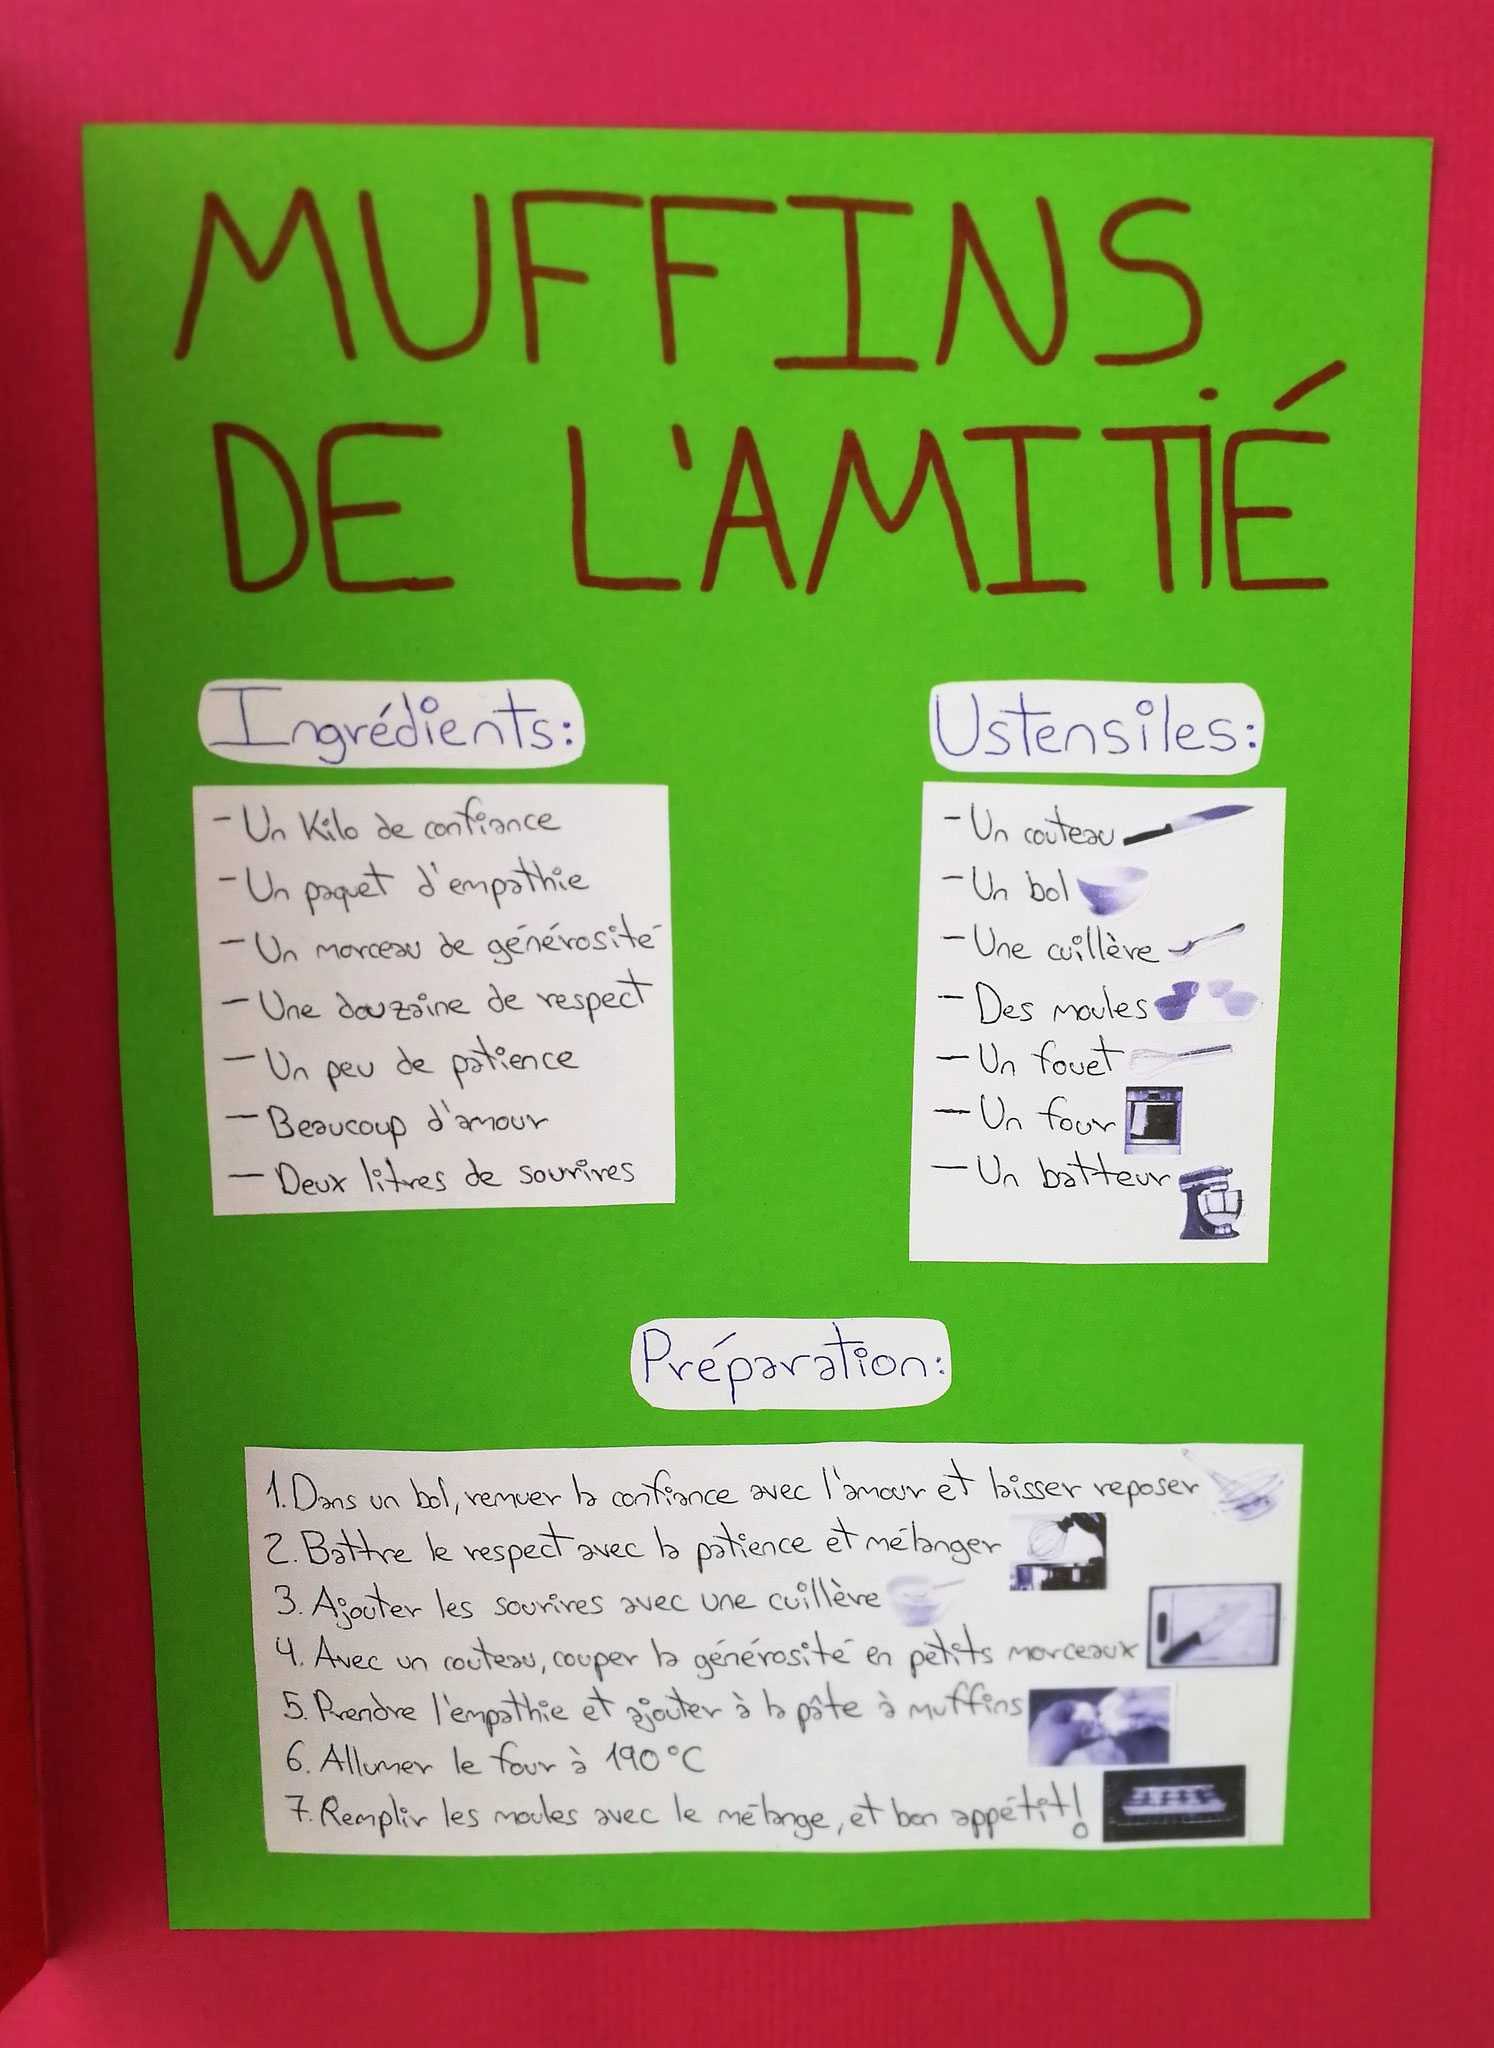 MUFFINS
DE L'AMITIÉ
Ingrédients:
- Un Kilo de confiance
- Un paquet d'empathie
- Un morceau de générosité
- Une douzaine de respect
- Un peu de patience
- Beaucoup d'amour
- Deux litres de sourires
Ustensiles:
- Un couteau
- Un bol
- Une cuillère
- Des moules
- Un fouet
- Un four
- Un batteur
Préparation:
1. Dans un bol, remuer la confiance avec l'amour et laisser reposer
2. Battre le respect avec la patience et mélanger
3. Ajouter les sourires avec une cuillère
4. Avec un couteau, couper la générosité en petits morceaux
5. Prendre l'empathie et ajouter à la pâte à muffins
6. Allumer le four à 190°C
7. Remplir les moules avec le mélange, et bon appétit!